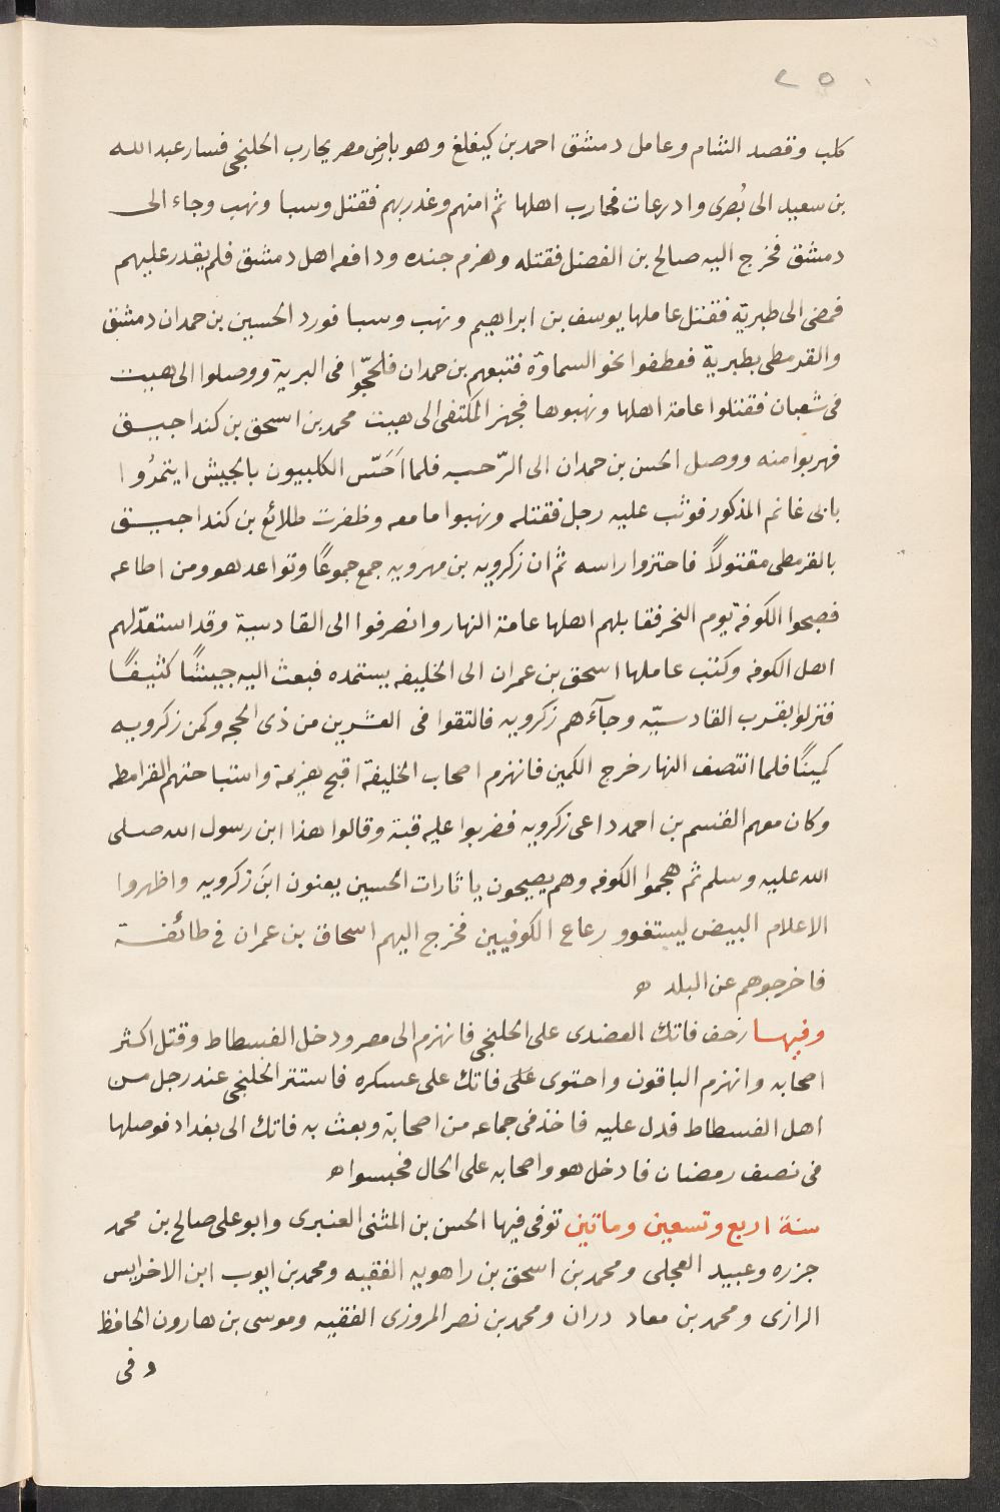 ٢٥
كلب وقصد الشام وعامل دمشق احمد بن كيغلغ وهو بارض مصر يحارب الخلنجى فسار عبد الله
بن سعيد الى بُصرى واذرعات فحارب اهلها ثم امنهم وغدر بهم فقتل وسبا ونهب وجاء الى
دمشق فخرج اليه صالح بن الفضل فقتله وهزم جنده ودافعه اهل دمشق فلم يقدر عليهم
فمضى الى طبرية فقتل عاملها يوسف بن ابراهيم ونهب وسبا فورد الحسين بن حمدان دمشق
والقرمطى بطبرية فعطفوا نحو السماوة فتبعهم بن حمدان فلججّوا فى البرية ووصلوا الى هيت
فى شعبان فقتلوا عامة اهلها ونهبوها فجهز المكتفى الى هيت محمد بن اسحق بن كنداجيق
فهربوا منه ووصل الحسن بن حمدان الى الرّحبه فلما اَحَسّ الكلبيون بالجيش ايتمرُوا
بابى غانم المذكور فوثب عليه رجل فقتله ونهبوا ما معه وظفرت طلائع بن كنداجيق
بالقرمطى مقتولاً فاحتزوا راسه ثم ان زكرويه بن مهرويه جمع جموعًا وتواعد هو ومن اطاعه
فصبحوا الكوفة يوم النحر فقابلهم اهلها عامة النهار وانصرفوا الى القادسية وقد استعدّ لهم
اهل الكوفه وكتب عاملها اسحق بن عمران الى الخليفه يستمده فبعث اليه جيشًا كثيفًا
فنزلوا بقرب القادسيّه وجآءهم زكرويه فالتقوا فى العشرين من ذى الحجه وكمن زكرويه
كمينًا فلما انتصف النهار خرج الكمين فانهزم اصحاب الخليفة اقبح هزيمة واستباحتهم القرامطه
وكان معهم القسم بن احمد داعى زكرويه فضربوا عليه قبة وقالوا هذا ابن رسول الله صلى
الله عليه وسلم ثم هجموا الكوفه وهم يصيحون يا ثارات الحسين يعنون ابنَ زكرويه واظهروا
الاعلام البيض ليستغوو رعاع الكوفيين فخرج اليهم اسحاق بن عمران في طائفة
فاخرجوهم عن البلد ه
وفيها زحف فاتك العضدى على الخلنجى فانهزم الى مصر ودخل الفسطاط وقتل اكثر
اصحابه وانهزم الباقون واحتوى عَلَى فاتك على عسكره فاستتر الخلنجى عند رجل من
اهل الفسطاط فدل عليه فاخذ فى جماعه من اصحابة وبعث به فاتك الى بغداد فوصلها
فى نصف رمضان فادخل هو واصحابه على الحال فحبسوا ه
سنة اربع وتسعين وماتين توفى فيها الحسن بن المثنى العنبرى وابو على صالح بن محمد
جزره وعبيد العجلى ومحمد بن اسحق بن راهويه الفقيه ومحمد بن ايوب ابن الاخرايس
الرازى ومحمد بن معاد دران ومحمد بن نصر المروزى الفقيه وموسى بن هارون الحافظ
وفى